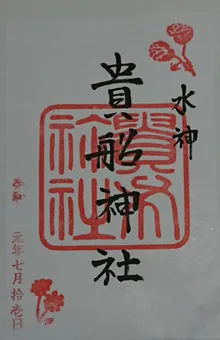 水神
貴船神社
貴船神社
令和
元年七月拾壱日